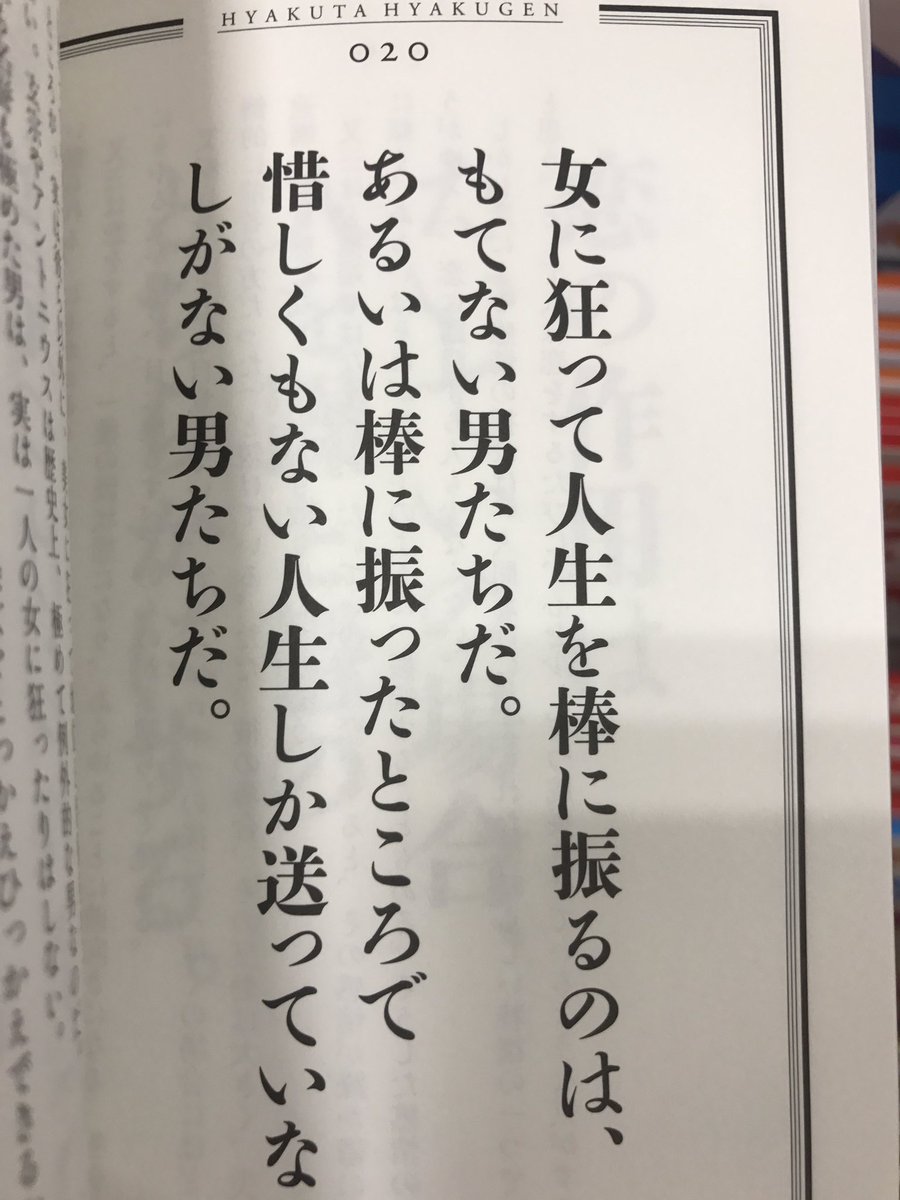 HYAKUTA HYAKUGEN
020
女に狂って人生を棒に振るのは、
もてない男たちだ。
あるいは棒に振ったところで
惜しくもない人生しか送っていな
しがない男たちだ。
アントニウスは歴史上、極めて例外的な男なの
めた男は、実は一人の女に狂ったりはしない。
っかえひっかえできる